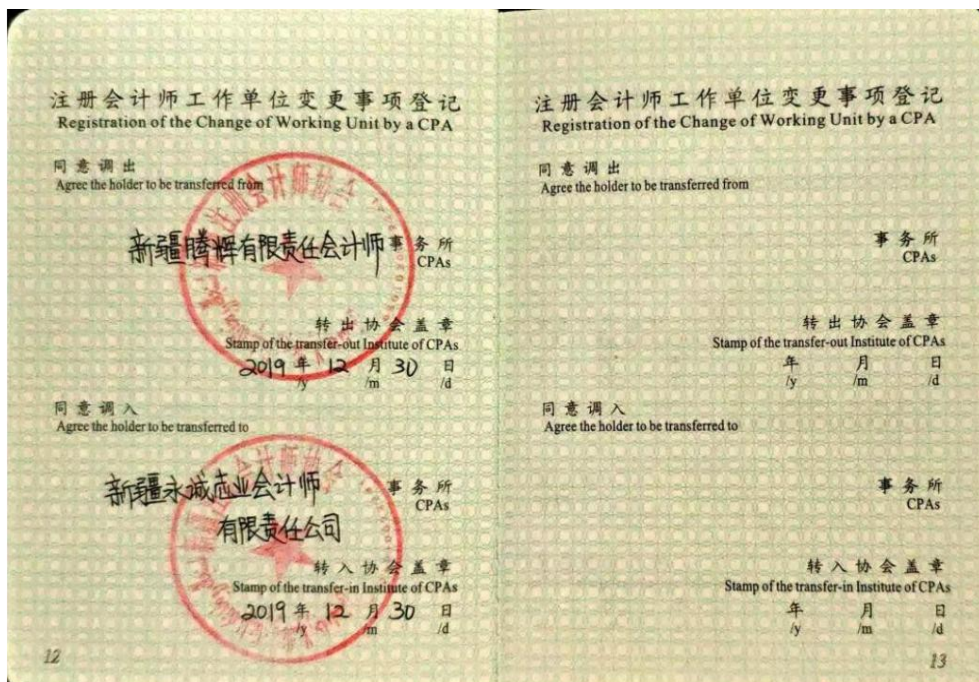 注册会计师工作单位变更事项登记
Registration of the Change of Working Unit by a CPA
同意调出
Agree the holder to be transferred from
新疆腾辉有限责任会计师事务所
CPAs
转出协会盖章
Stamp of the transfer-out Institute of CPAs
2019年12月30日
/y /m /d
同意调入
Agree the holder to be transferred to
新疆永诚志业会计师事务所
CPAs
有限责任公司
转入协会盖章
Stamp of the transfer-in Institute of CPAs
2019年12月30日
/y /m /d
12
注册会计师工作单位变更事项登记
Registration of the Change of Working Unit by a CPA
同意调出
Agree the holder to be transferred from
事务所
CPAs
转出协会盖章
Stamp of the transfer-out Institute of CPAs
年 月 日
/y /m /d
同意调入
Agree the holder to be transferred to
事务所
CPAs
转入协会盖章
Stamp of the transfer-in Institute of CPAs
年 月 日
/y /m /d
13